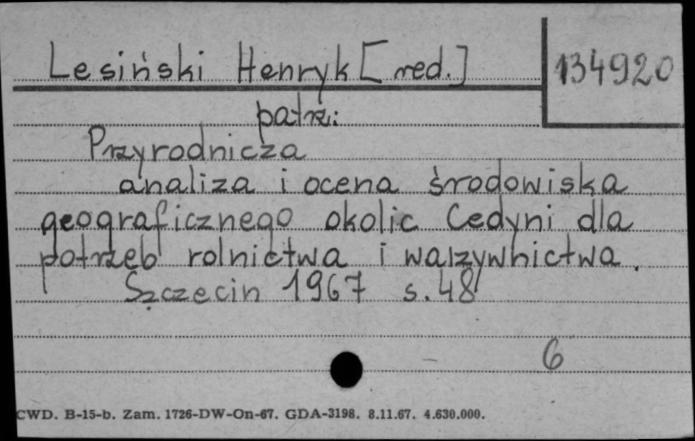 Lesiński Henryk [red.] 134920
patrz:
Przyrodnicza
analiza i ocena środowiska
geograficznego okolic Cedyni dla
potrzeb rolnictwa i warzywnictwa.
Szczecin 1967 s. 48
6
CWD. B-15-b. Zam. 1726-DW-On-67. GDA-3198. 8.11.67. 4.630.000.